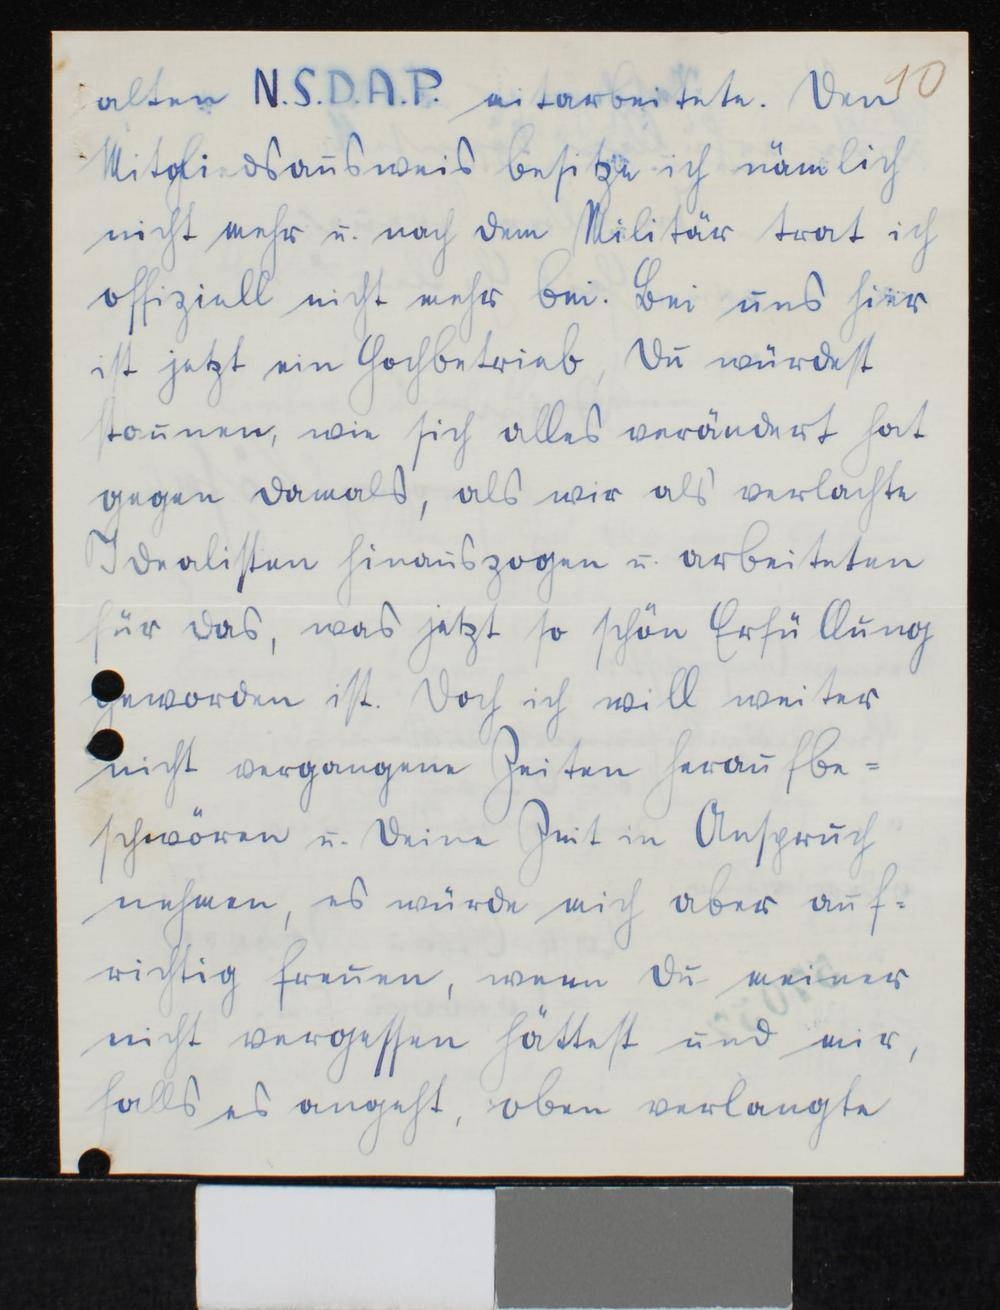 10
alten N.S.D.A.P. mitarbeitete. Den
Mitgliedsausweis besitze ich nämlich
nicht mehr u. nach dem Militär trat ich
offiziell nicht mehr bei. Bei uns hier
ist jetzt ein Hochbetrieb, Du würdest
staunen, wie sich alles verändert hat
gegen damals, als wir als verlachte
Idealisten hinauszogen u. arbeiteten
für das, was jetzt so schön Erfüllung
geworden ist. Doch ich will weiter
nicht vergangene Zeiten heraufbe=
schwören u. Deine Zeit in Anspruch
nehmen, es würde mich aber auf=
richtig freuen, wenn Du meiner
nicht vergessen hättest und mir,
falls es angeht, oben verlangte